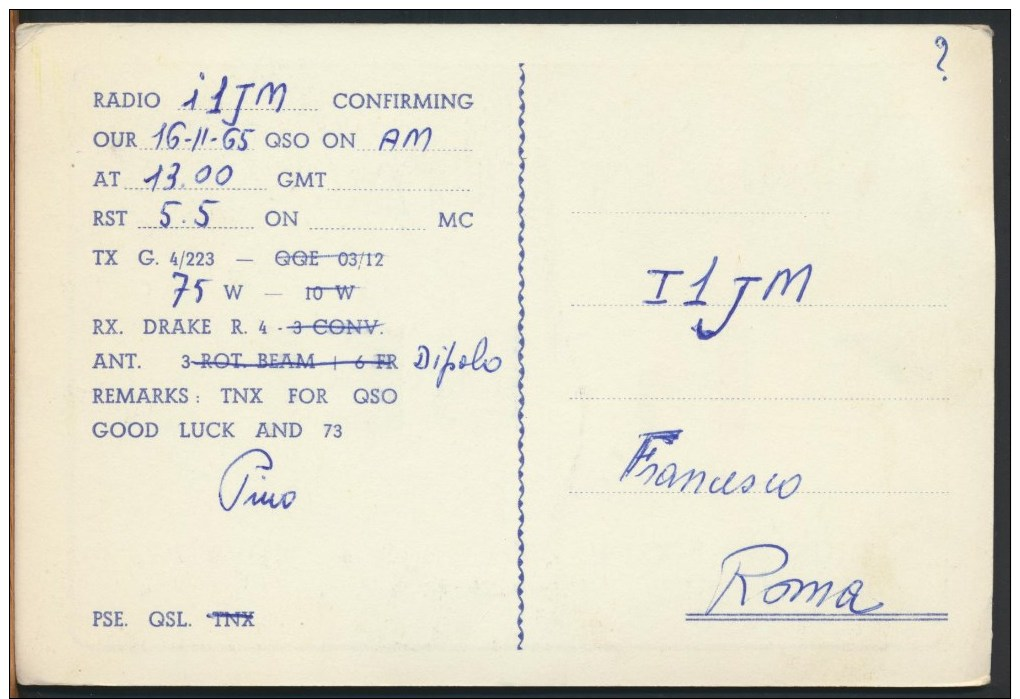 ?
RADIO i1JM CONFIRMING
OUR 16-11-65 QSO ON AM
AT 13.00 GMT
RST 5.5 ON MC
TX G. 4/223 — QQE 03/12
75 W — 10 W
RX. DRAKE R. 4 - 3 CONV.
ANT. 3 ROT. BEAM + 6 FR Dipolo
REMARKS: TNX FOR QSO
GOOD LUCK AND 73
Pino
PSE. QSL. TNX
I1JM
Francesco
Roma